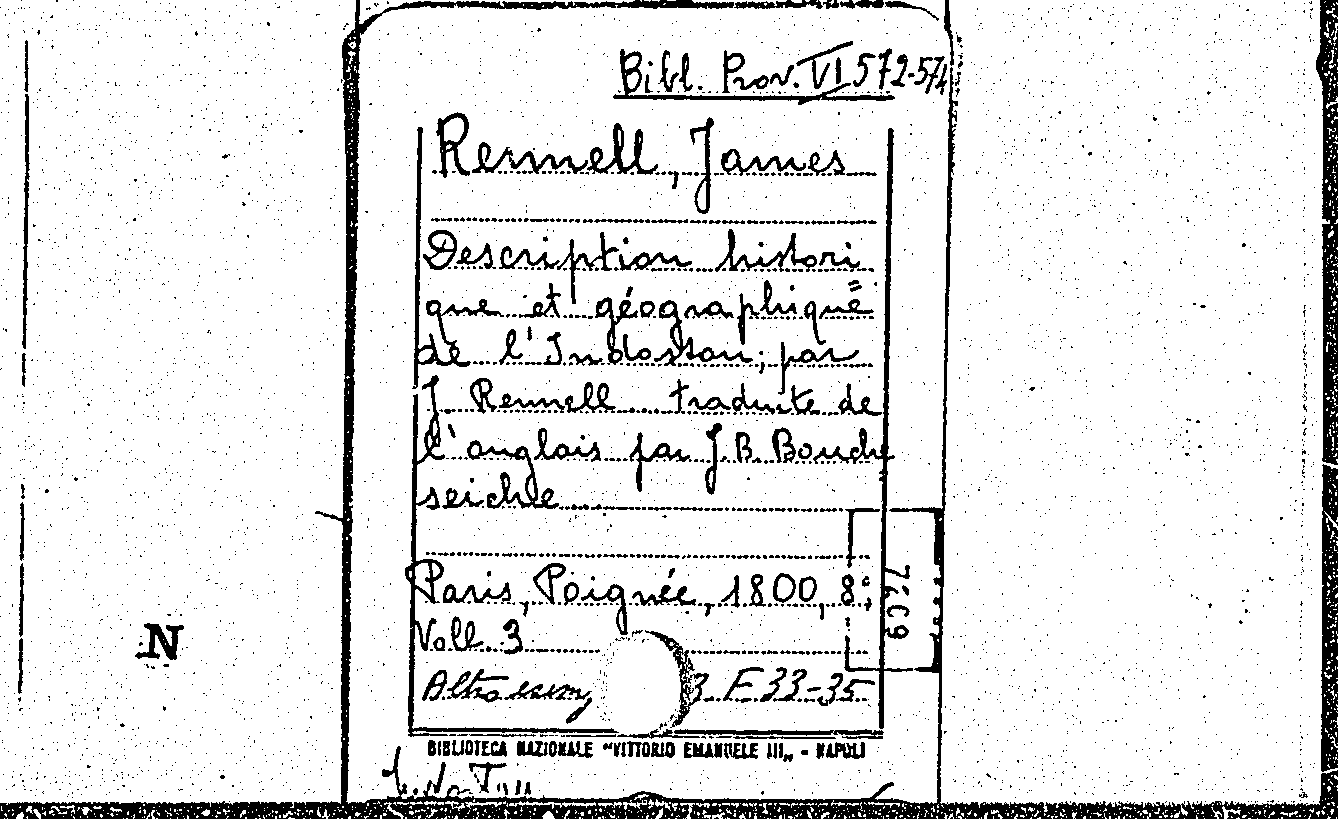 Bibl. Prov. VI 572-574
Rennell, James
Description histori
que et géographique
de l'Indostan, par
J. Rennell... traduite de
l'anglais par J. B. Bouche
seiche...
Paris, Poignée, 1800, 8°;
Voll. 3
Altro esem. 3. F. 33-35
BIBLIOTECA NAZIONALE "VITTORIO EMANUELE III„ - NAPOLI
7609
N